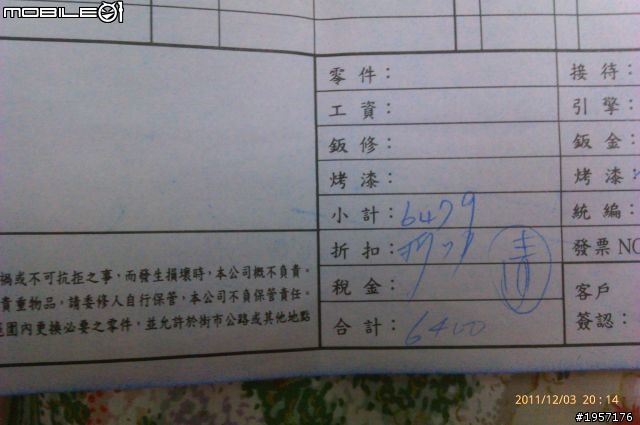 MOBILE01
零件：
接待：
工資：
引擎：
鈑修：
鈑金：
烤漆：
烤漆：
小計：6479
統編：
折扣：
發票NO
稅金：
客戶
簽認：
合計：6400
禍或不可抗拒之事，而發生損壞時，本公司概不負責。
貴重物品，請委修人自行保管，本公司不負保管責任。
範圍內更換必要之零件，並允許於街市公路或其他地點
2011/12/03 20:14
#1957176